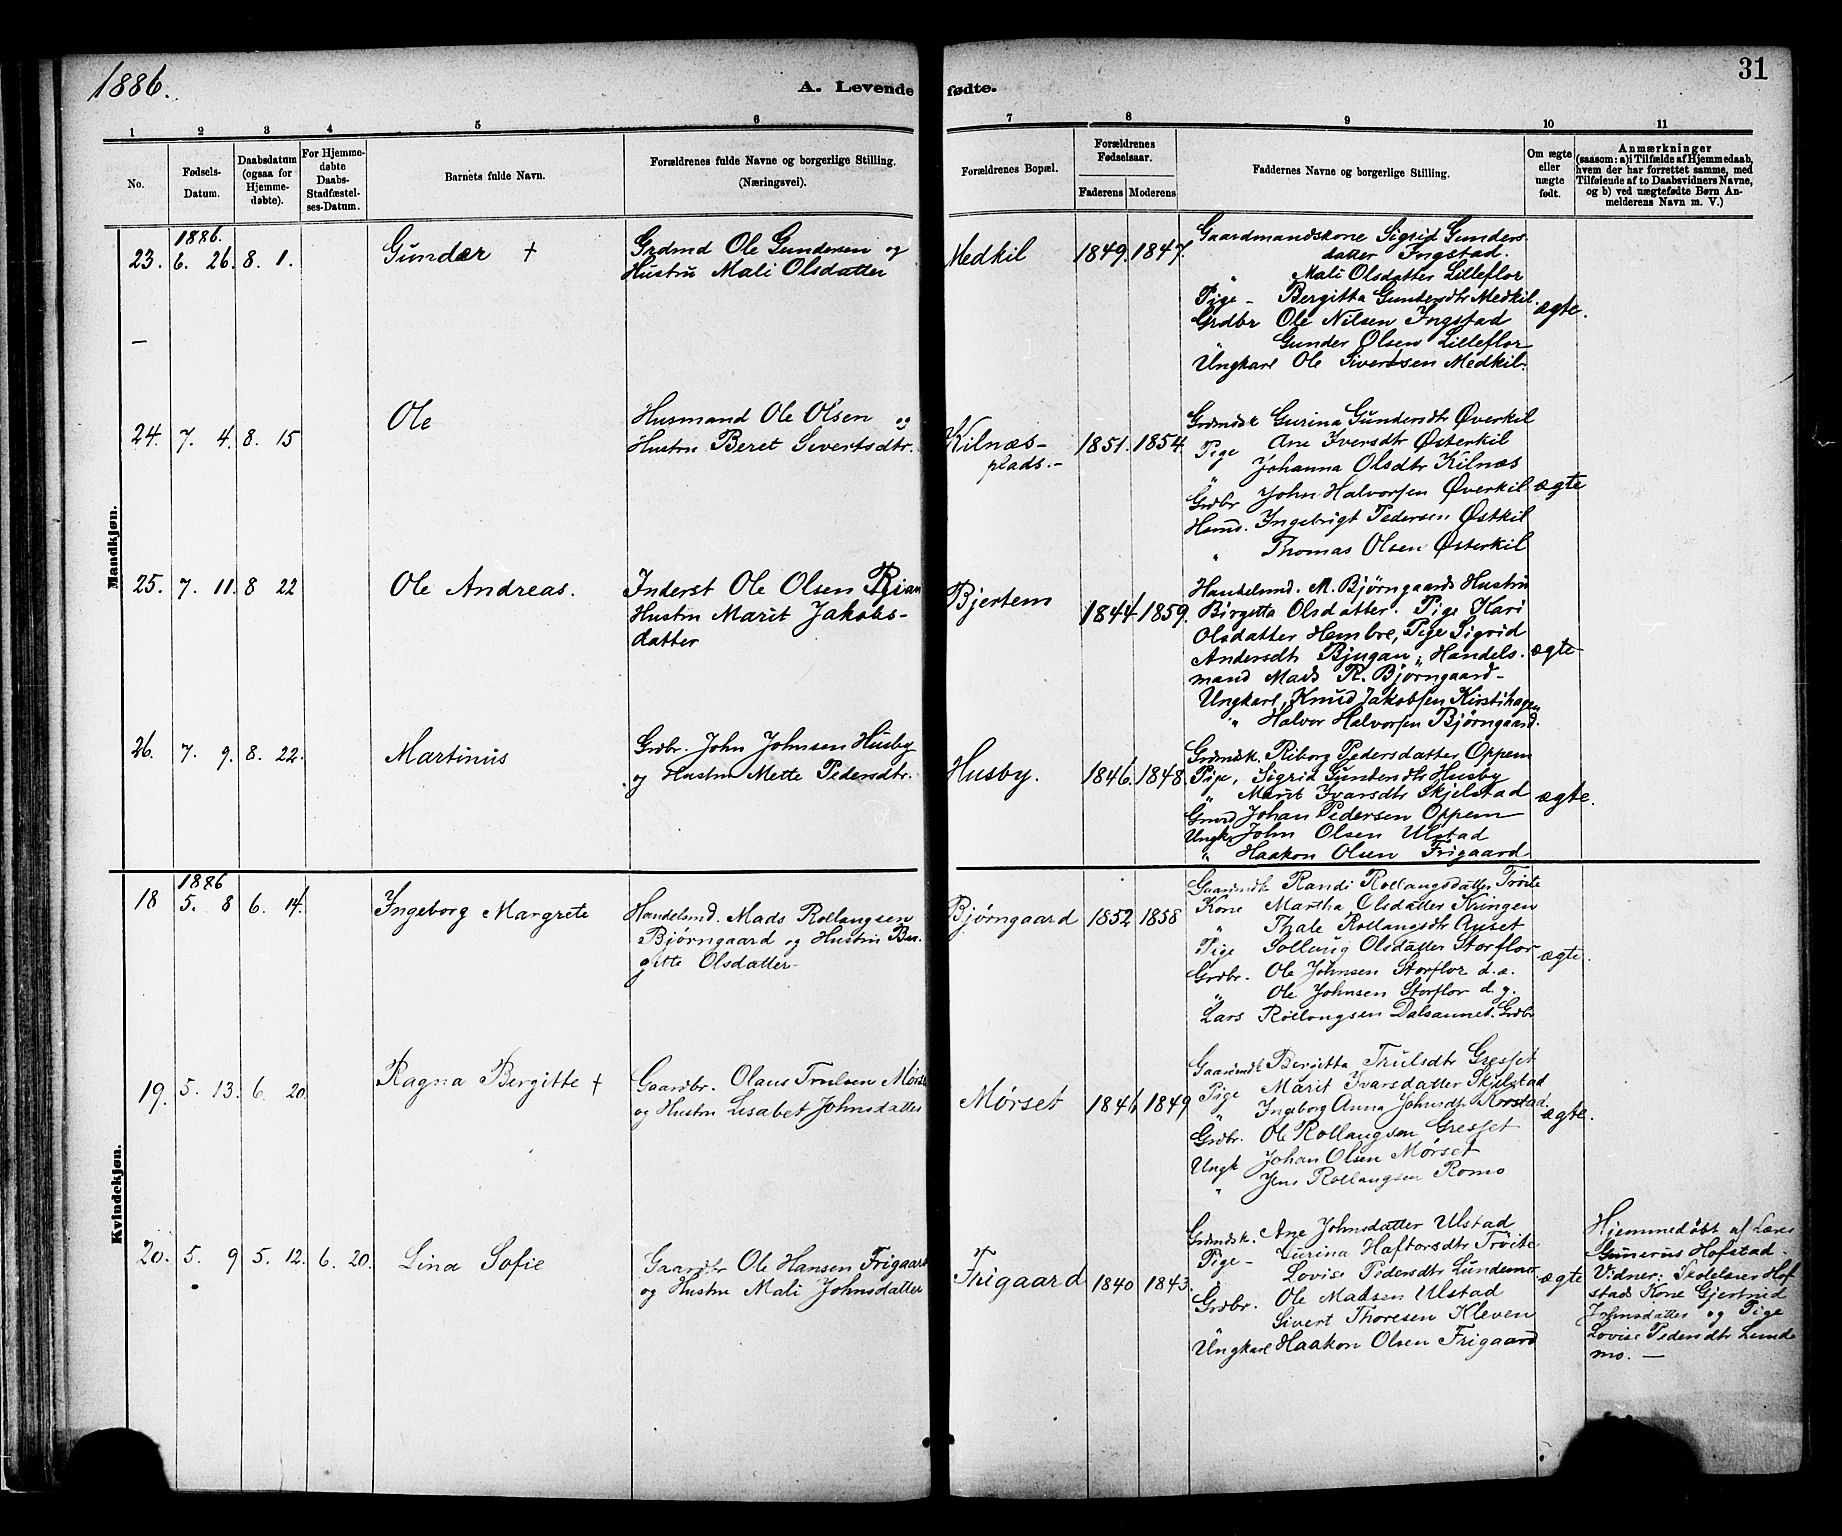 1886.
A. Levende fødte.
31
1 2 3 4 5 6 7 8 9 10 11
No.
Fødsels-
Datum.
Daabsdatum
(ogsaa for
Hjemme-
døbte).
For Hjemme-
døbte
Daabs-
Stadfæstel-
ses-Datum.
Barnets fulde Navn.
Forældrenes fulde Navne og borgerlige Stilling.
(Næringsvei).
Forældrenes Bopæl.
Forældrenes
Fødselsaar.
Faderens Moderens
Faddernes Navne og borgerlige Stilling.
Om ægte
eller
uægte
født.
Anmærkninger
(saasom: a) i Tilfælde af Hjemmedaab,
hvem der har forrettet samme, med
Tilføiende af to Daabsvidners Navne,
og b) ved uægtefødte Børn An-
melderens Navn m. V.)
Mandkjøn.
1886.
23. 6. 26. 8. 1.
Gunder +
Grdmd Ole Gundersen og
Hustru Mali Olsdatter
Medkil
1849. 1847.
Gaardmandskone Sigrid Gunders-
datter Ingstad.
" Mali Olsdatter Lilleflor
Pige - Bergitta Gundersdtr Medkil.
Grdbr Ole Nilsen Ingstad
" Gunder Olsen Lilleflor
Ungkarl Ole Sivertsen Medkil.
ægte.
24. 7. 4. 8. 15
Ole
Husmand Ole Olsen og
Hustru Beret Sivertsdtr.
Kilnæs-
plads.-
1851. 1854.
Grdmdsk Gurina Gundersdtr Øverkil
Pige Ane Iversdtr Østerkil
" Johanna Olsdtr Kilnæs
Grdbr John Halvorsen Øverkil
Hsmd. Ingebrigt Pedersen Østkil
" Thomas Olsen Østerkil
ægte
25. 7. 11. 8 22
Ole Andreas.
Inderst Ole Olsen
Hustru Marit Jakobs-
datter
Bjertem
1844. 1859.
Handelsmd. M. Bjørngaards Hustru
Birgetta Olsdatter. Pige Kari
Olsdatter Hembre, Pige Sigrid
Andersdtr Bjugan, Handels-
mand Mads R. Bjørngaard-
Ungkarl, Knud Jakobsen Kirstihagen
" Halvor Halvorsen Bjørngaard.
ægte
26. 7. 9. 8. 22.
Martinus
Grdbr. John Johnsen Husby
og Hustru Mette Pedersdtr.
Husby.
1846. 1848.
Grdmdsk. Riborg Pedersdatter Oppem
Pige, Sigrid Gundersdtr Husby
" Marit Ivarsdtr Skjelstad
Grmd Johan Pedersen Oppem
Ungk John Olsen Ulstad
" Haakon Olsen Frigaard
ægte.
Kvindekjøn.
1886
18 5. 8 6. 14.
Ingeborg Margrete
Handelsmd. Mads Rollaugsen
Bjørngaard og Hustru Ber-
gitte Olsdatter-
Bjørngaard
1852 1858
Gaardmdsk Randi Rollaugsdatter Trøite
Kone Martha Olsdatter Kringen
" Thale Rollaugsdtr Auset
Pige Sollaug Olsdatter Storflor
Grdbr. Ole Johnsen Storflor d.æ.
" Ole Johnsen Storflor d.y.
Lars Rollaugsen Dalsaunet. Grdbr
ægte.
19. 5. 13. 6. 20.
Ragna Bergitte +
Gaardbr. Olaus Trulsen Mørs
og Hustru Lisabet Johnsdatter
Mørset
1846 1849
Gaardmdk Beritta Trulsdtr Gresset
Pige Marit Ivarsdatter Skjelstad
" Ingeborg Anna Johnsdtr Korstad.
Grdbr. Ole Rollaugsen Gresset
Ungk Johan Olsen Mørset
" Jens Rollaugsen Romo
ægte.
20. 5. 9 5. 12. 6. 20.
Lina Sofie
Gaardbr Ole Hansen Frigaard
og Hustru Mali Johnsdatter
Frigaard
1840 1843.
Grdmdsk. Ane Johnsdatter Ulstad
Pige- Gurina Haftorsdtr Trøite
" Lovise Pedersdtr Lundemo.
Grdbr. Ole Madsen Ulstad
Sivert Thoresen Kleven
Ungkarl Haakon Olsen Frigaard
ægte
Hjemmedøbt af Lærer
Gunerus Hofstad.
Vidner: Skolelærer Hof
stads Kone Gjertrud
Johnsdatter og Pige
Lovise Pedersdtr Lunde
mo. —